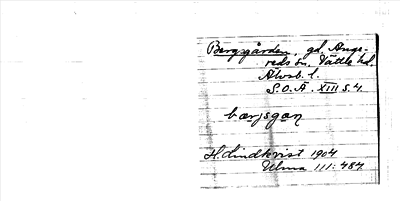 Bergsgården, gd. Ange-
reds sn. Vättle hd.
Älvsb. l.
S.O.Ä. XIII s. 4.
bærjsgan
H. Lindkvist 1904
Ulma 111:487